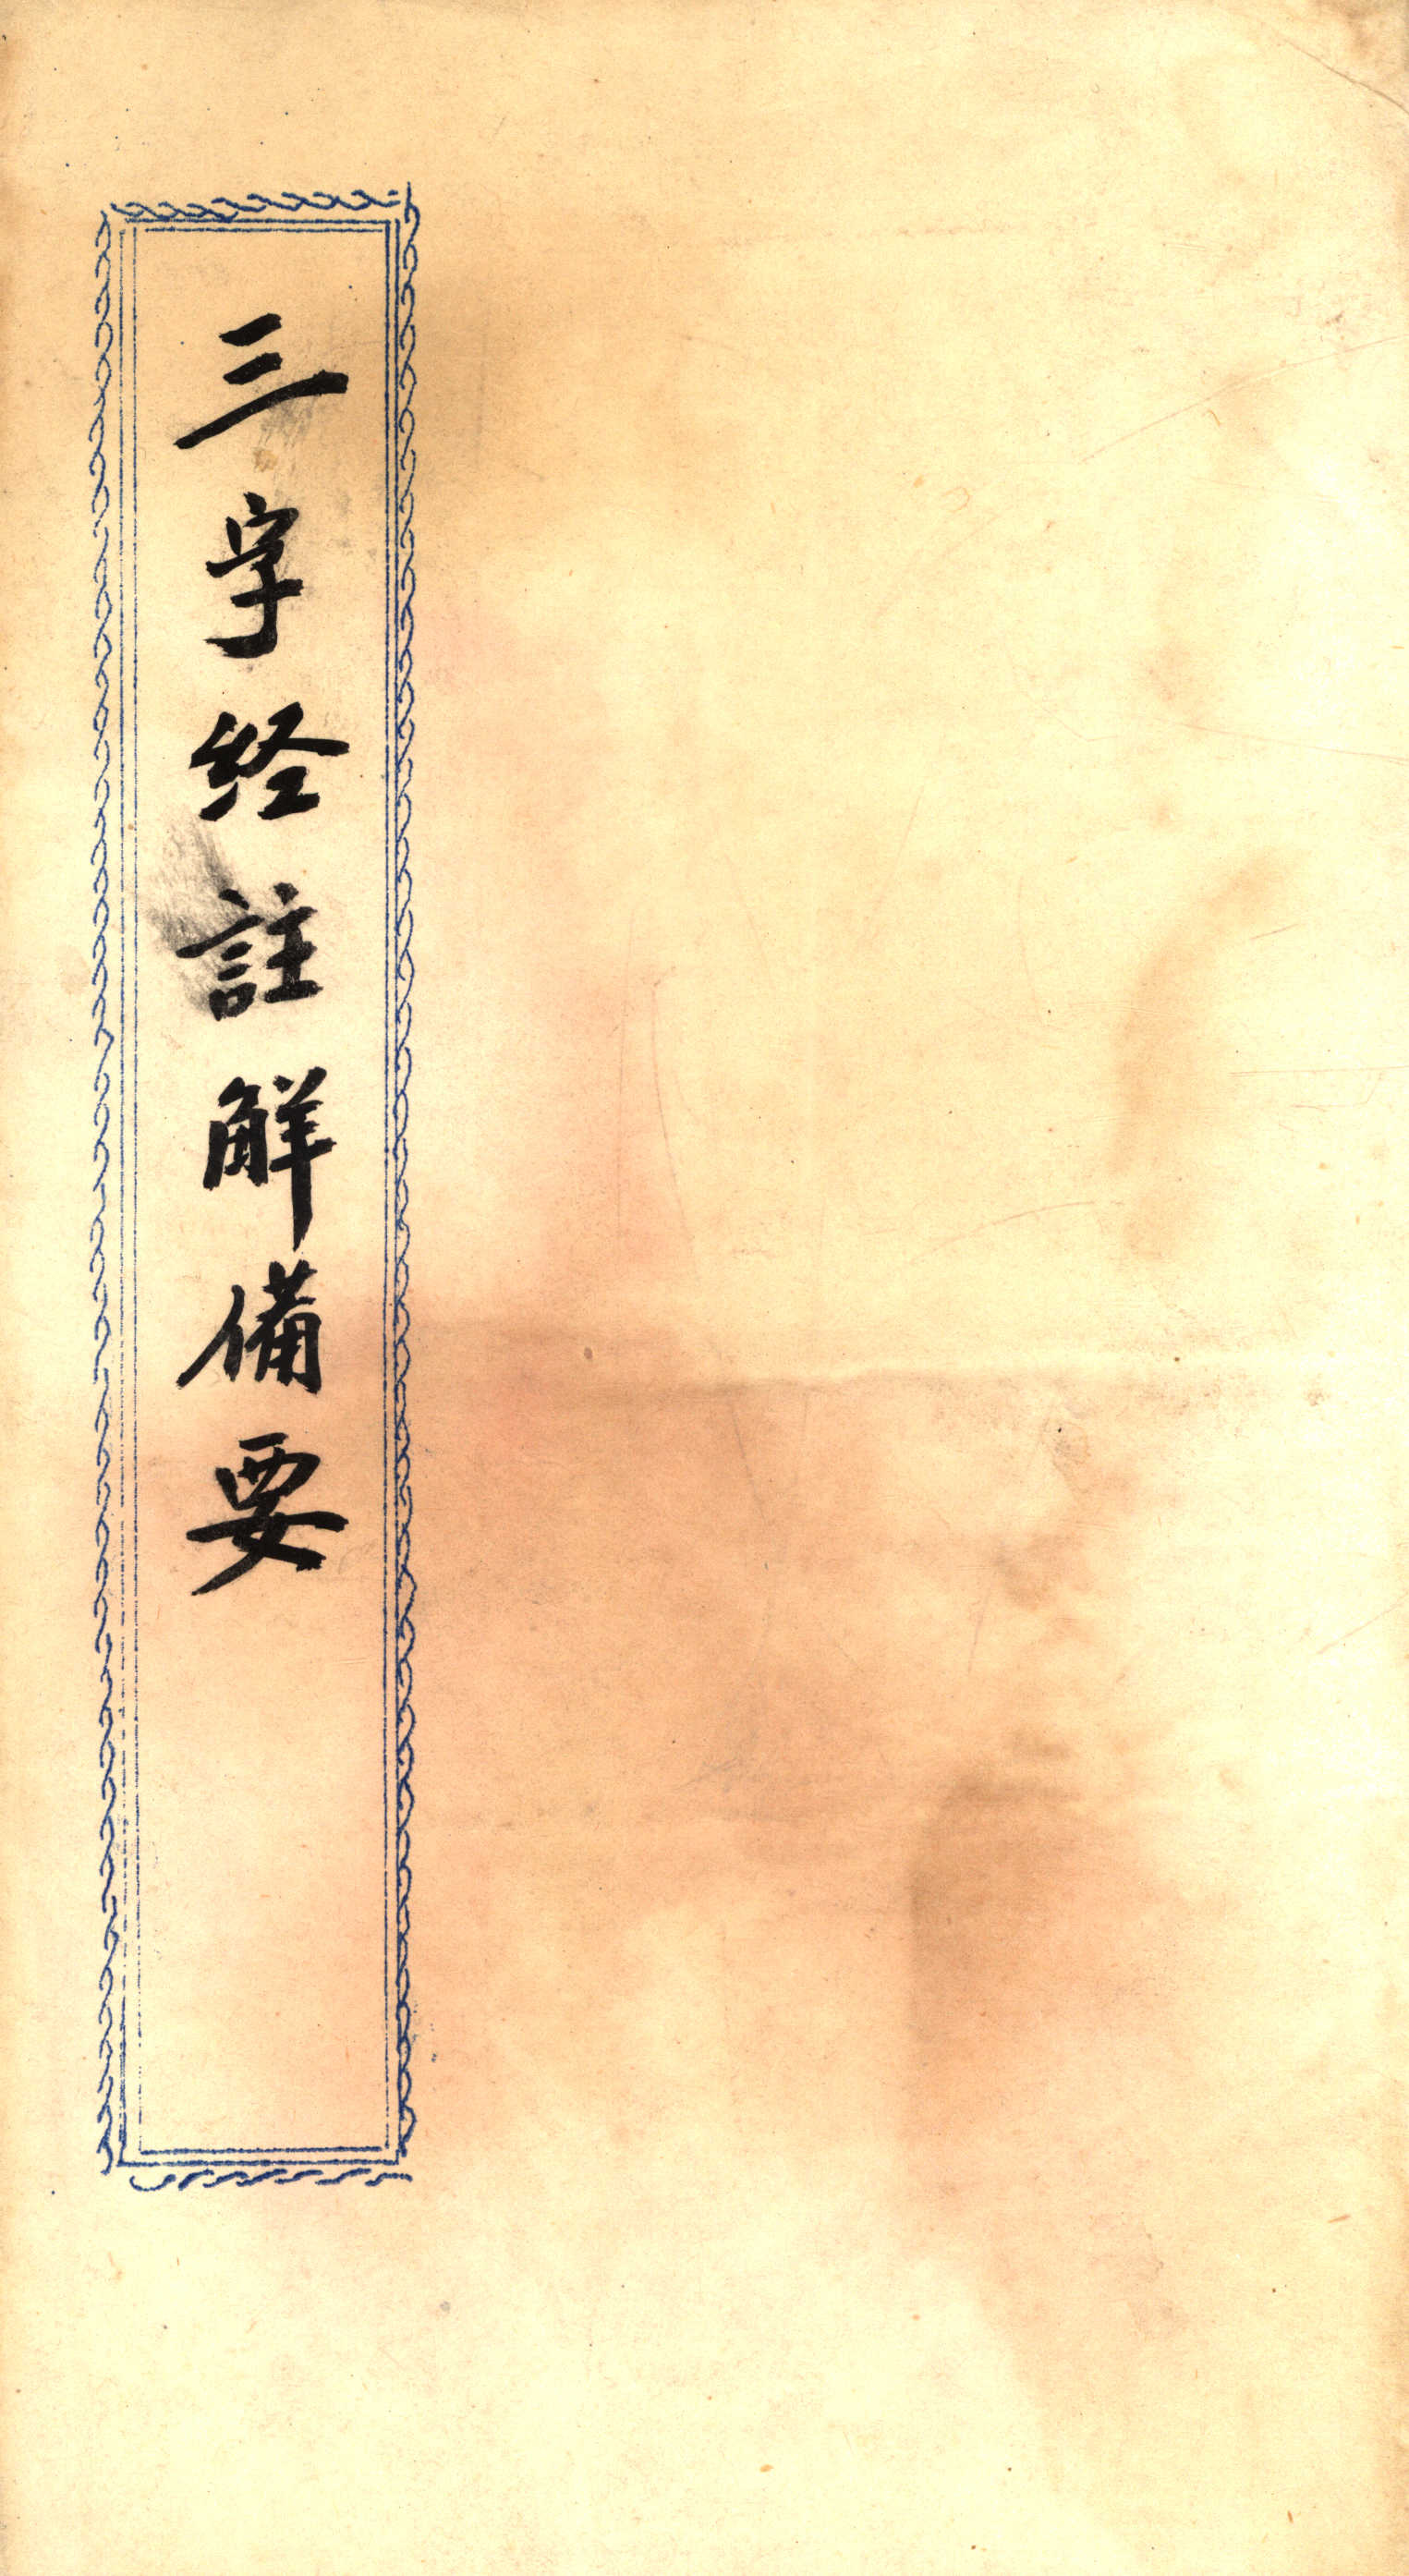 三字経註觧備要